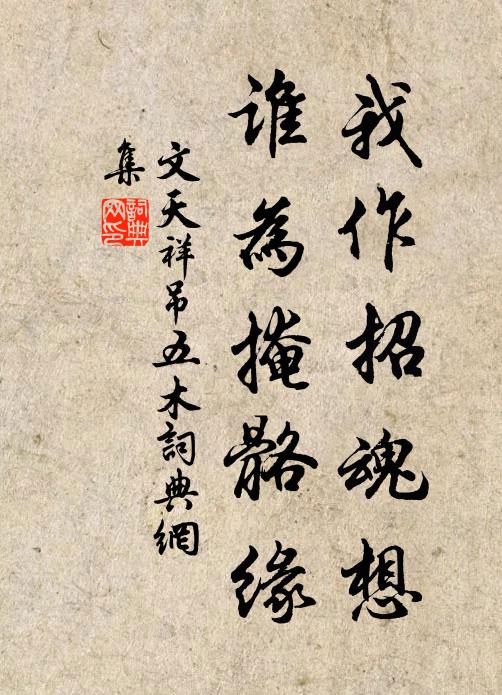 我作招魂想
誰為掩骼緣
文天祥吊五木詞典網
集
詞典
网印